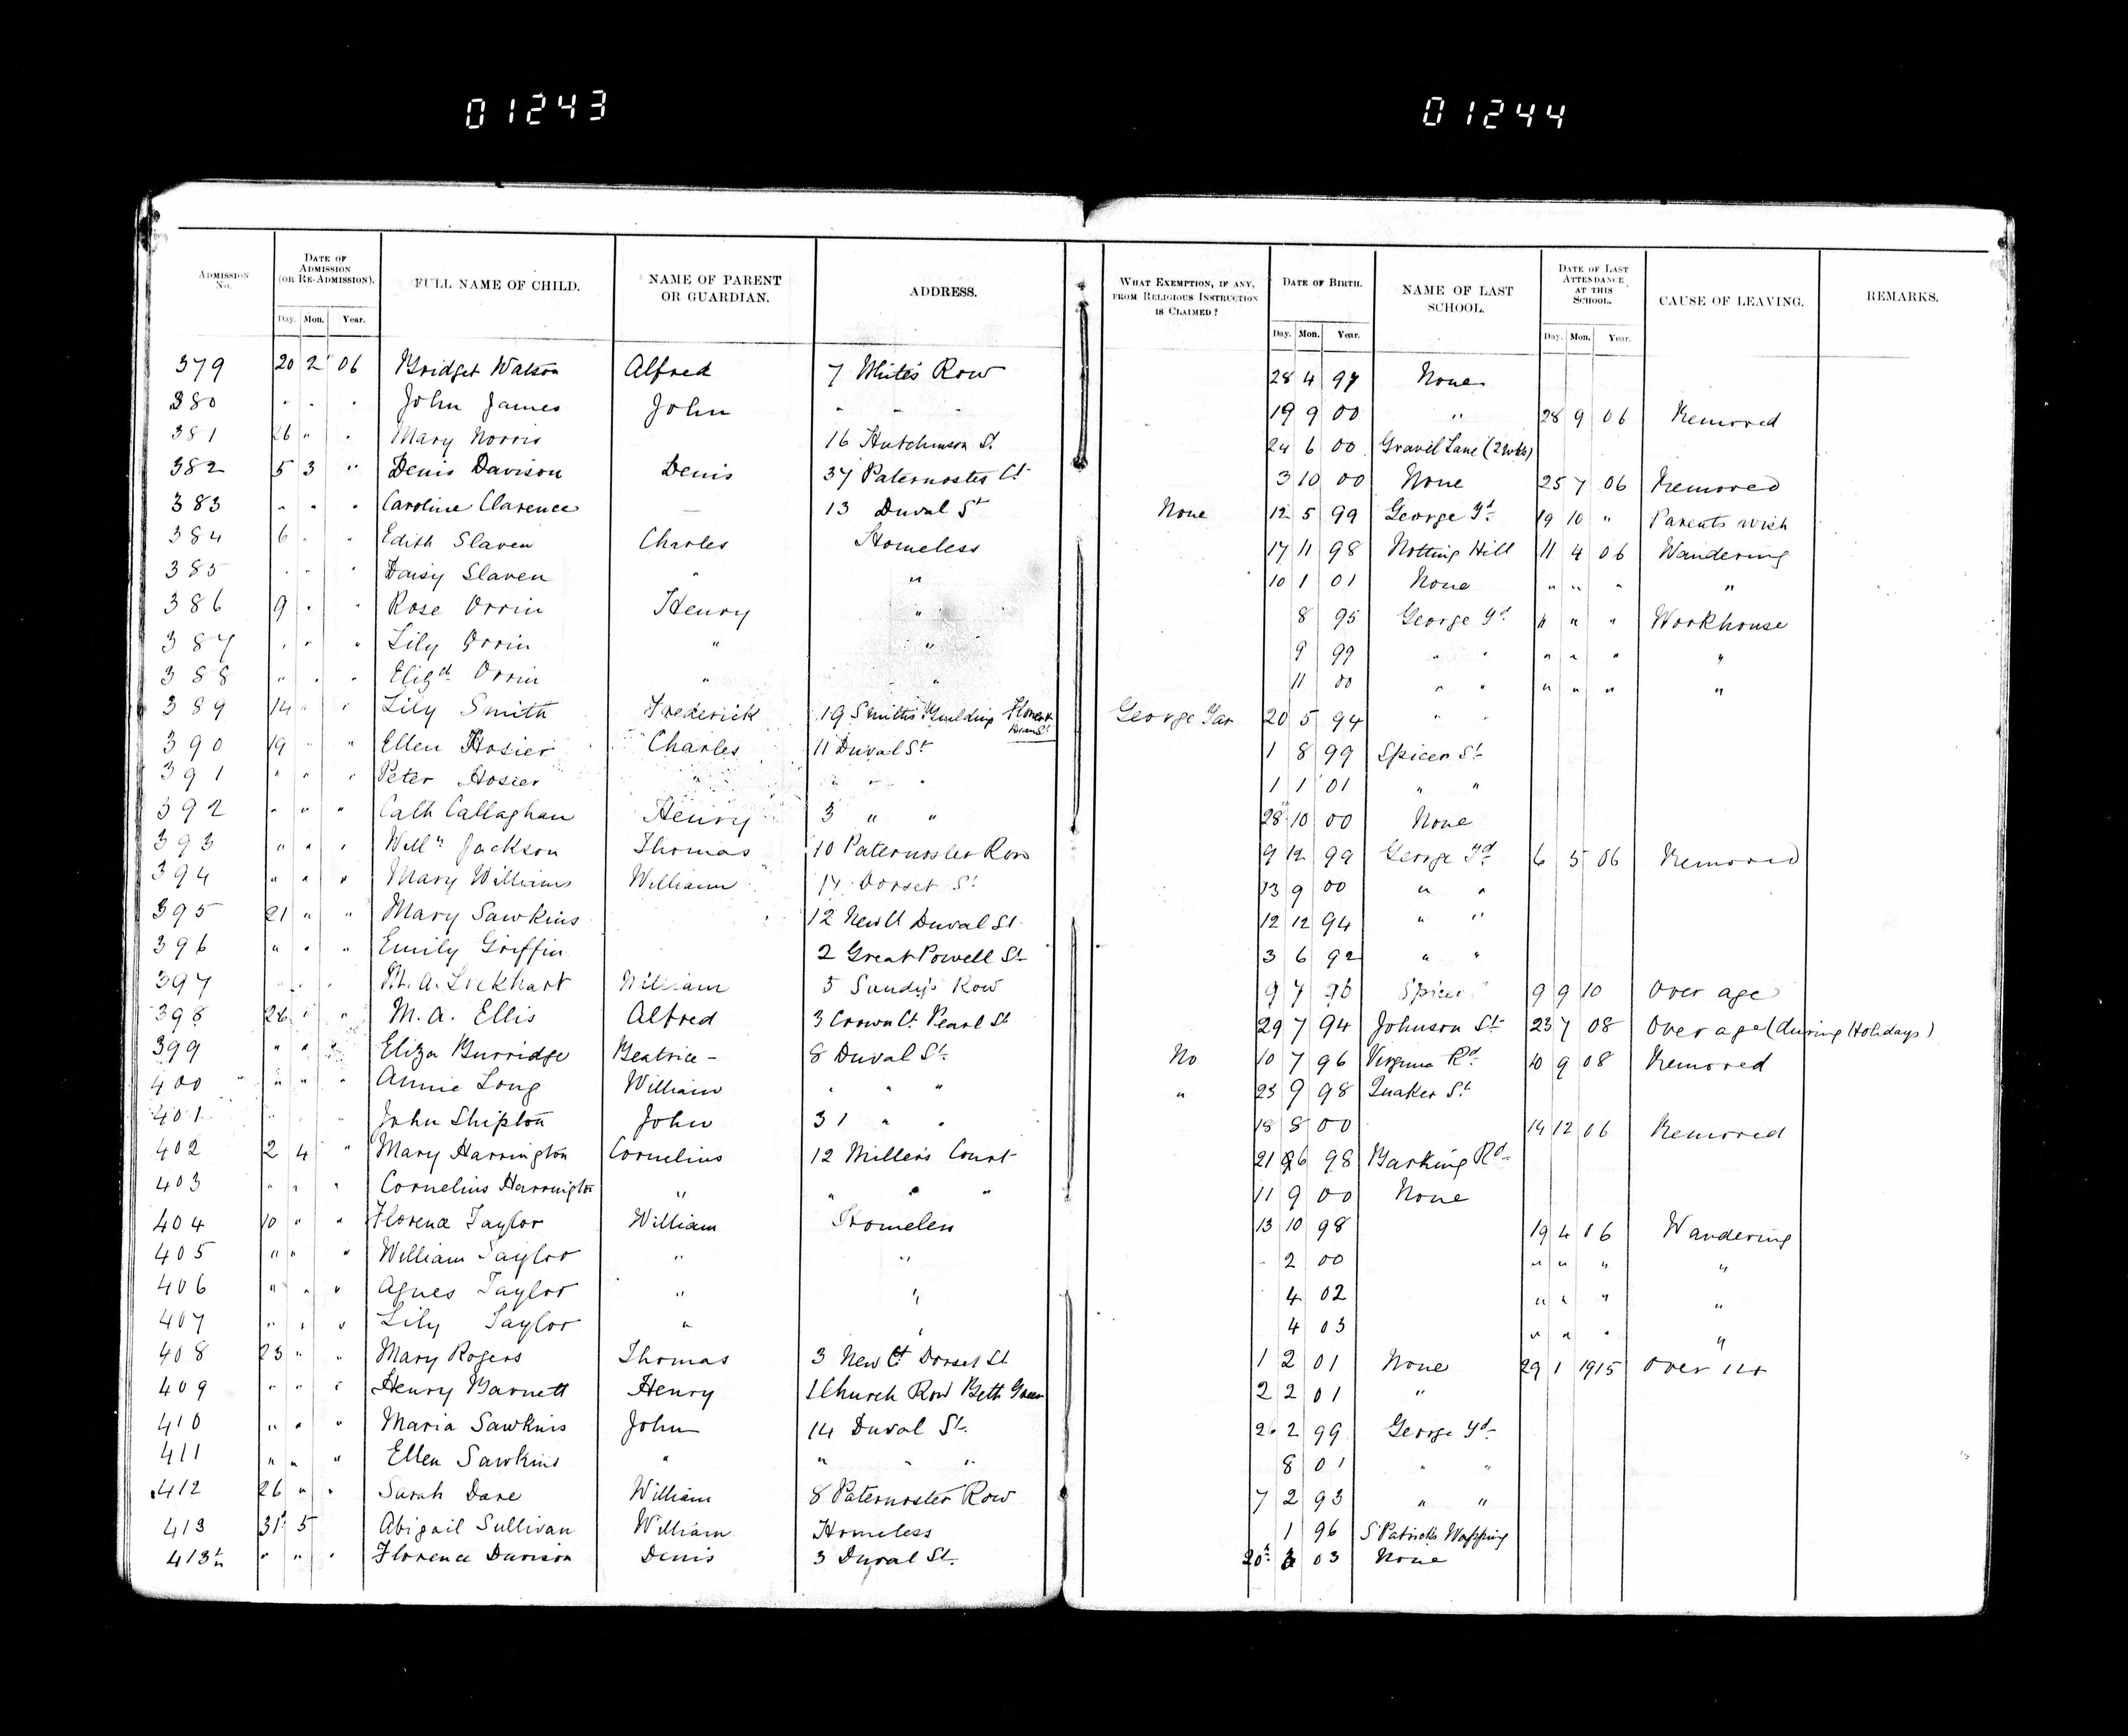 01243
01244
ADMISSION No. DATE OF ADMISSION (OR RE-ADMISSION). Day. Mon. Year. FULL NAME OF CHILD. NAME OF PARENT OR GUARDIAN. ADDRESS. WHAT EXEMPTION, IF ANY, FROM RELIGIOUS INSTRUCTION IS CLAIMED? DATE OF BIRTH. Day. Mon. Year. NAME OF LAST SCHOOL. DATE OF LAST ATTENDANCE AT THIS SCHOOL. Day. Mon. Year. CAUSE OF LEAVING. REMARKS.
379 20 2 06 Bridget Watson Alfred 7 White's Row 28 4 97 None
380 " " " John James John " " " 19 9 00 " 28 9 06 Removed
381 26 " " Mary Norris 16 Hutchinson St 24 6 00 Gravel Lane (2 wks)
382 5 3 " Denis Davison Denis 37 Paternoster Ct 3 10 00 None 25 7 06 Removed
383 " " " Caroline Clarence — 13 Duval St None 12 5 99 George Yd 19 10 " Parents wish
384 6 " " Edith Slaven Charles Homeless 17 11 98 Notting Hill 11 4 06 Wandering
385 " " " Daisy Slaven " " 10 1 01 None " " " "
386 9 " " Rose Orrin Henry " 8 95 George Yd " " " Workhouse
387 " " " Lily Orrin " " 9 99 " " " " " "
388 " " " Elizth Orrin " " 11 00 " " " " " "
389 14 " " Lily Smith Frederick 19 Smiths Building George Yar 20 5 94 " "
390 19 " " Ellen Hosier Charles 11 Duval St 1 8 99 Spicer St
391 " " " Peter Hosier " " " " 1 1 01 " "
392 " " " Cath Callaghan Henry 3 " " 28 10 00 None
393 " " " Willm Jackson Thomas 10 Paternoster Row 9 12 99 George Yd 6 5 06 Removed
394 " " " Mary Williams William 17 Dorset St 13 9 00 " "
395 21 " " Mary Sawkins 12 New Ct Duval St 12 12 94 " "
396 " " " Emily Griffin 2 Great Powell St 3 6 92 " "
397 " " " M. A. Lockhart William 5 Sandy's Row 9 7 96 Spicer 9 9 10 Over age
398 26 " " M. A. Ellis Alfred 3 Crown Ct Pearl St 29 7 94 Johnson St 23 7 08 Over age (during Holidays)
399 " " " Eliza Burridge Beatrice - 8 Duval St No 10 7 96 Virginia Rd 10 9 08 Removed
400 " " " Annie Long William " " " " 23 9 98 Quaker St
401 " " " John Shipton John 31 " " 18 8 00 14 12 06 Removed
402 2 4 " Mary Harrington Cornelius 12 Millers Court 21 6 98 Barking Rd
403 " " " Cornelius Harrington " " " " 11 9 00 None
404 10 " " Florence Taylor William Homeless 13 10 98 19 4 06 Wandering
405 " " " William Taylor " " 2 00 " " " "
406 " " " Agnes Taylor " " 4 02 " " " "
407 " " " Lily Taylor " " 4 03 " " " "
408 23 " " Mary Rogers Thomas 3 New Ct Dorset St 1 2 01 None 29 1 1915 Over
409 " " " Henry Barnett Henry 1 Church Row Beth Green 2 2 01 "
410 " " " Maria Sawkins John 14 Duval St. 26 2 99 George Yd
411 " " " Ellen Sawkins " " " " 8 01 " "
412 26 " " Sarah Dare William 8 Paternoster Row 7 2 93 " "
413 31 5 Abigail Sullivan William Homeless 1 96 St Patricks Wapping
413 " " " Florence Davison Denis 3 Duval St. 20 03 None